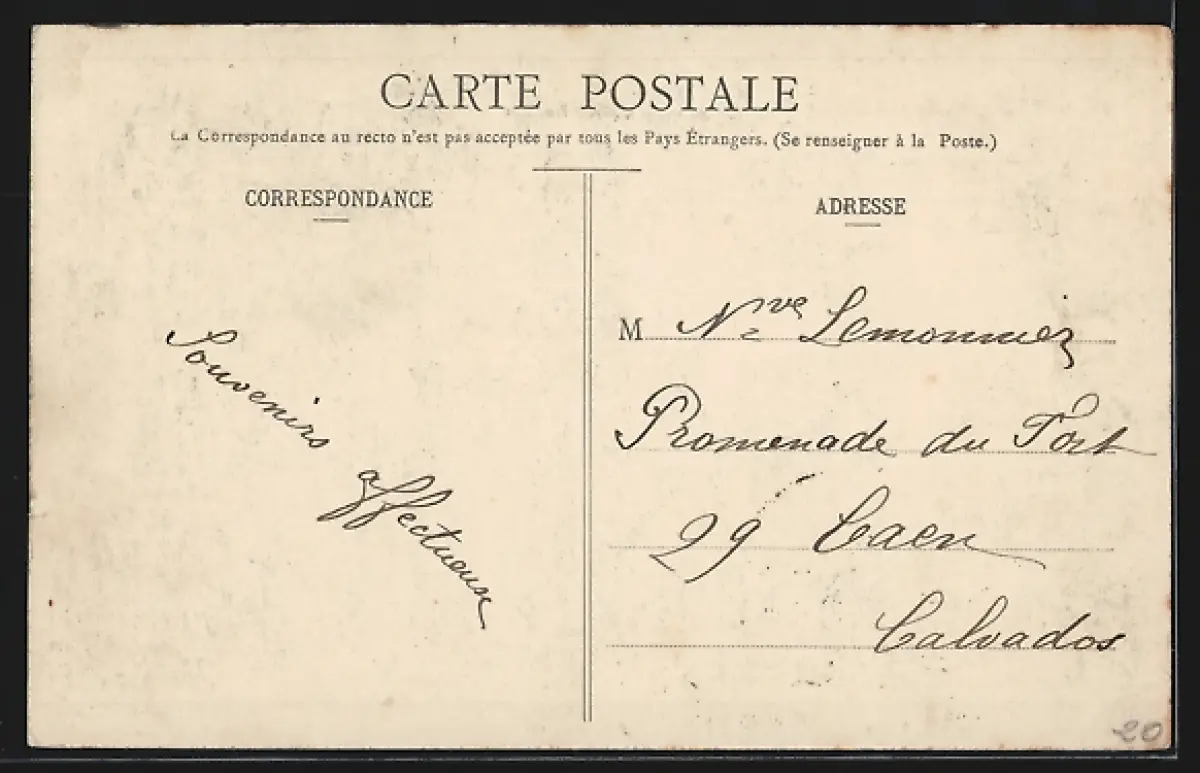 CARTE POSTALE
La Correspondance au recto n'est pas acceptée par tous les Pays Étrangers. (Se renseigner à la Poste.)
CORRESPONDANCE
Souvenirs
affectueux
ADRESSE
M Lemonnier
Promenade du Fort
29 Caen
Calvados
20